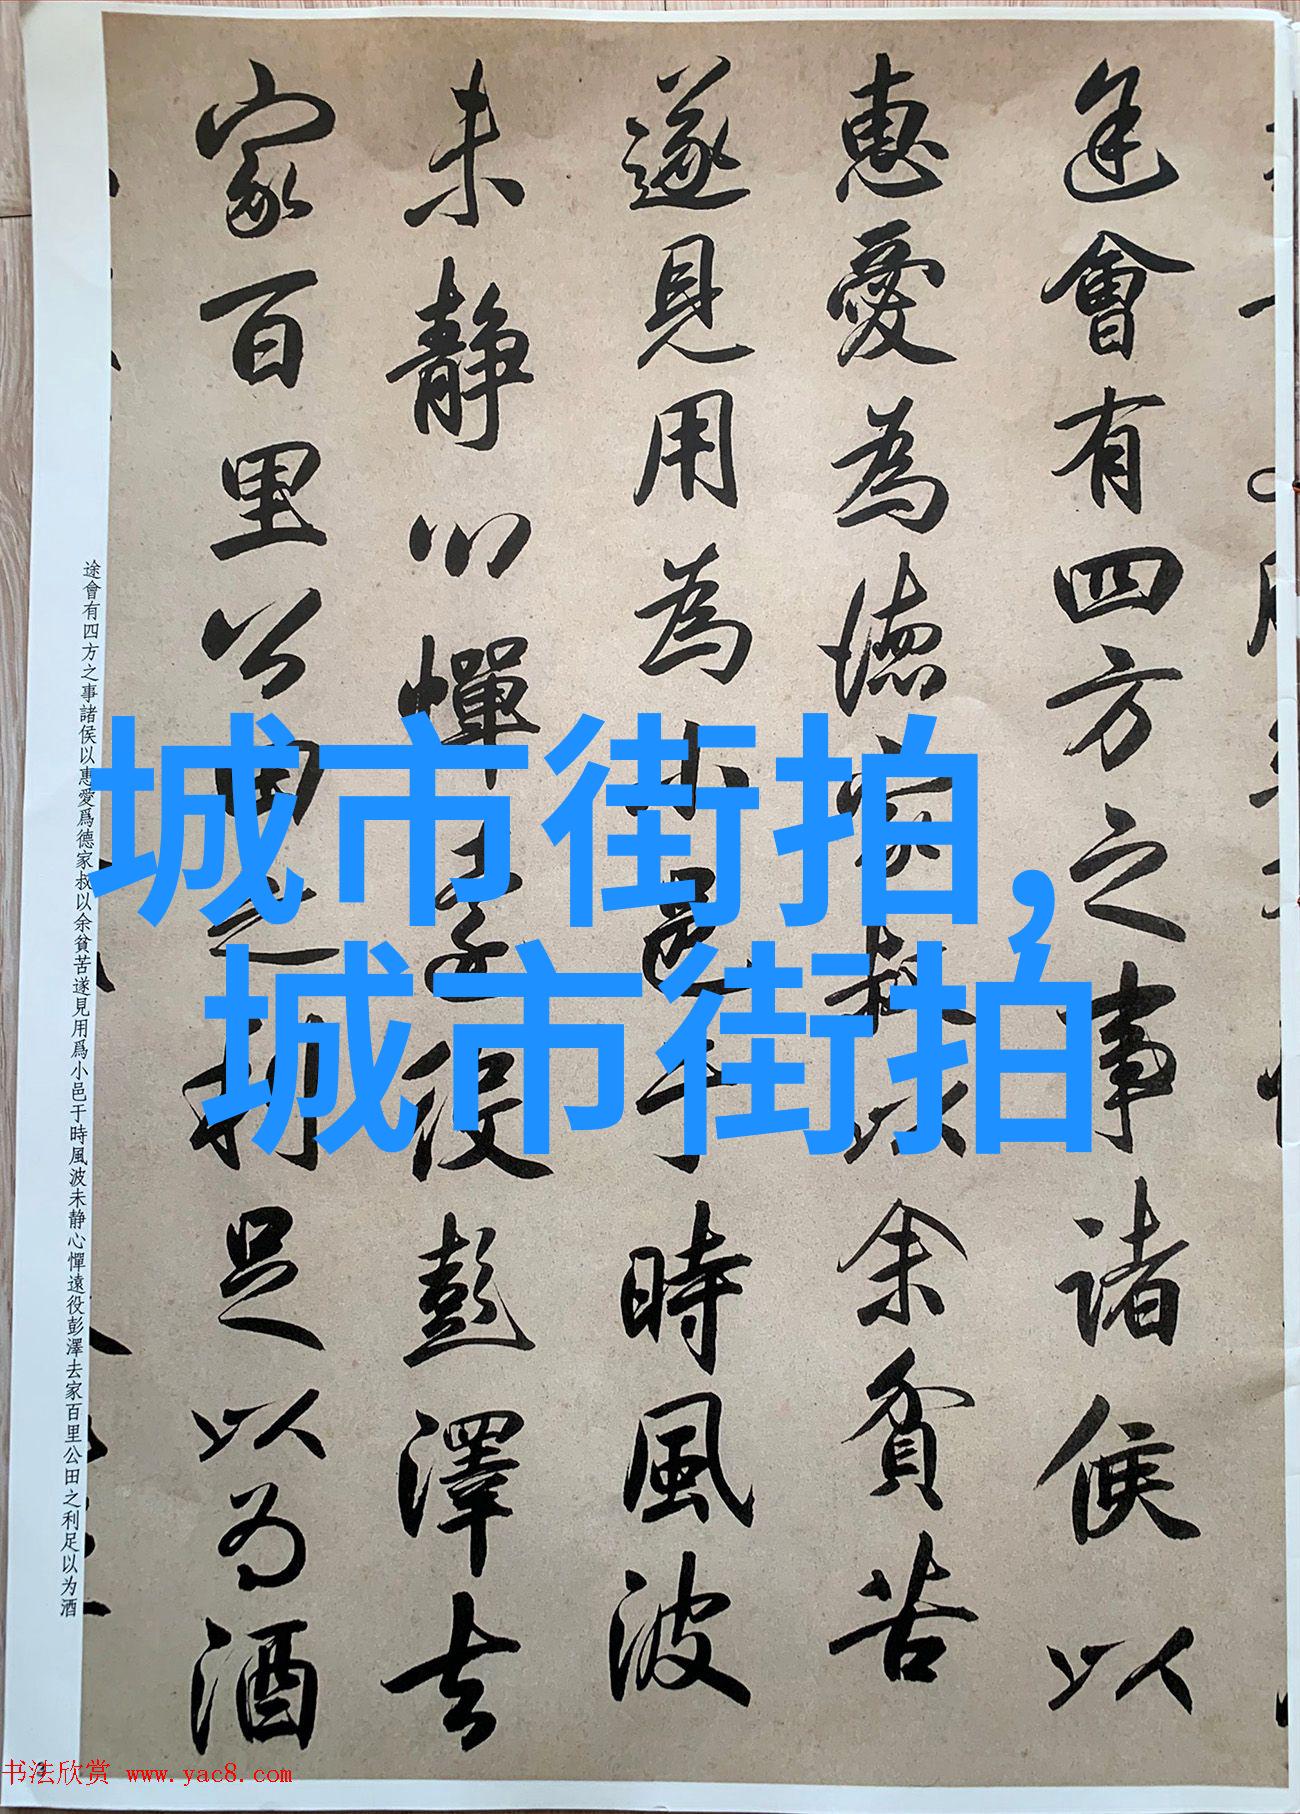 途會有四方之事諸侯以
惠愛為德家叔以余貧苦
遂見用為小邑于時風波
未静心憚遠役彭澤去
家百里公田之利足以為酒
途會有四方之事諸侯以惠愛爲德家叔以余貧苦遂見用爲小邑于時風波未静心憚遠役彭澤去家百里公田之利足以为酒
城市街拍,
城市街拍
3
书法欣赏 www.yac8.com